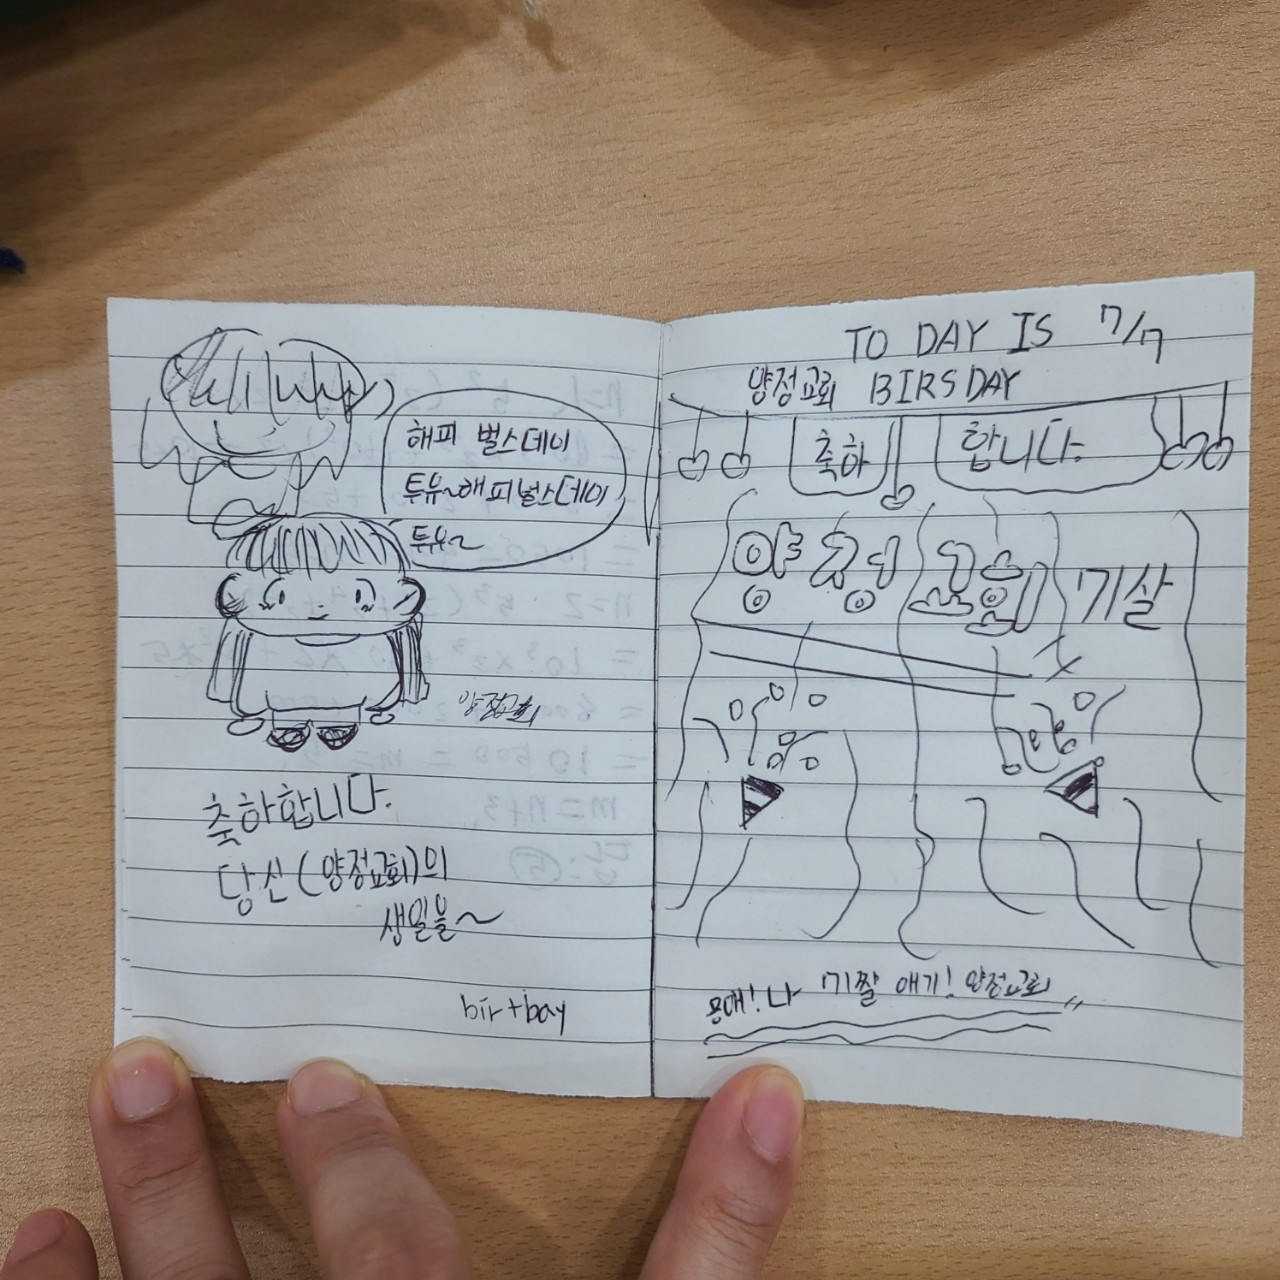 해피 벌스데이
투유~해피벌스데이
투유~
양정교회
축하합니다.
당신(양정교회)의
생일을~
birtbay
TO DAY IS 7/7
양정교회 BIRSDAY
축하 합니다.
양정교회 기살
나 기짤 애기! 양정교회